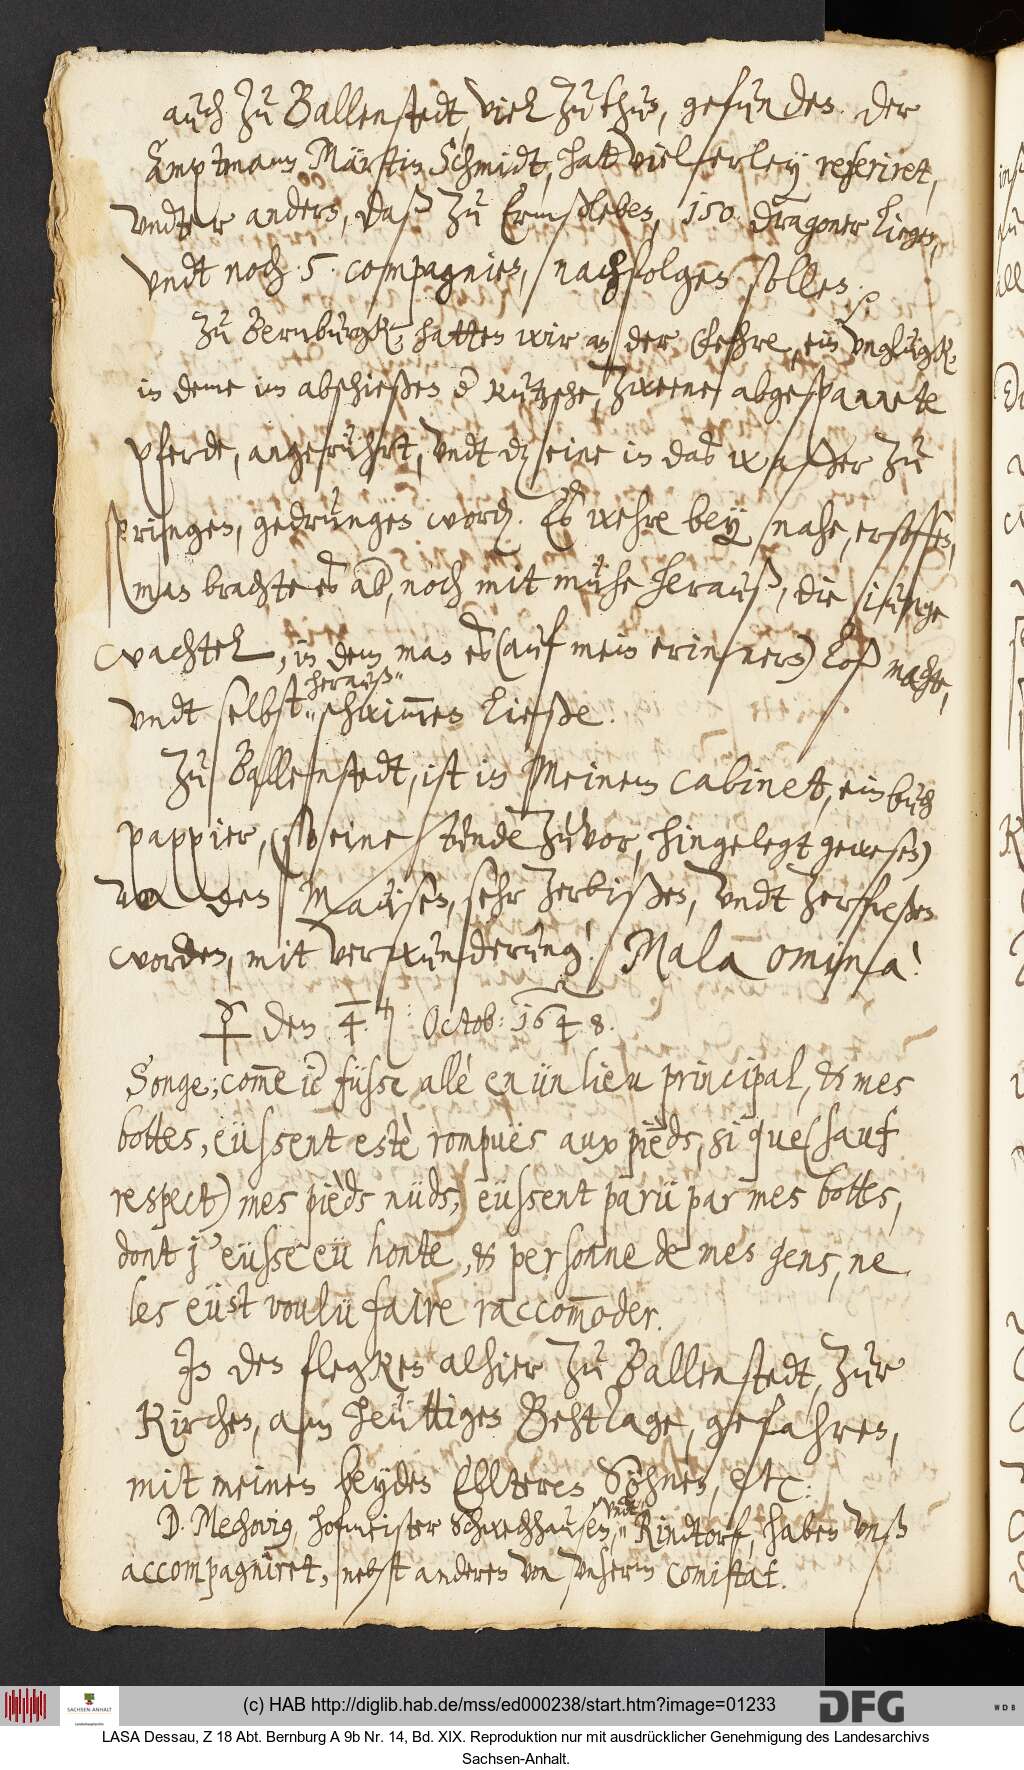 auch zu Ballenstedt, viel zu thun, gefunden. Der
Amptmann Märtin Schmidt, hatt vielerley referiret,
undter andern, daß zu Ermßleben, 150 dragoner liegen,
undt noch 5 compagnien, nachfolgen sollen.
Zu Bernburgk, hatten wir an der Fehre, ein unglügk,
in deme im abschießen d' Kutzsche, zweene abgespannete
pferde, angerührt, undt dz eine in das waßer zu
springen, gedrungen word. Es wehre bey nahe, ersoffen,
man brachte es ab, noch mit mühe herauß, die junge
wachtel, in dem man es (auf mein erinnern) loß machte,
undt selbst herauß schwim̄en ließe.
Zu Ballenstedt, ist in Meinem cabinet, ein buch
pappier, (so eine stunde zuvor, hingelegt gewesen)
von den Mausen, sehr zerbißen, undt zerfreßen
worden, mit verwunderung! Mala omina!
♀ den 4. Octob: 1648.
Songe; com̄e ie füsse allè en ün lieu principal, & mes
bottes, eüssent estè rompuës aux pièds, si que (sauf
respect) mes pièds nüds, eüssent parü par mes bottes,
dont j'eüsse eü honte, & personne de mes gens, ne
les eüst voulü faire raccom̄oder.
In den flegken alhier zu Ballenstedt, zur
Kirchen, am heüttigen Behttage, gefahren,
mit meinen beyden Elltern Söhnen, etc:
D. Mechovig, hofmeister Schwechhausen, undt Rindtorf, haben unß
accompagniret, nebst anderen von unserm Comitat.
(c) HAB http://diglib.hab.de/mss/ed000238/start.htm?image=01233
SACHSEN-ANHALT
DFG
WDB
LASA Dessau, Z 18 Abt. Bernburg A 9b Nr. 14, Bd. XIX. Reproduktion nur mit ausdrücklicher Genehmigung des Landesarchivs
Sachsen-Anhalt.